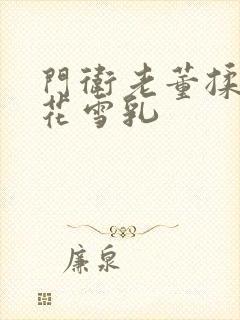 門衛老董揉
花雪乳
廉泉